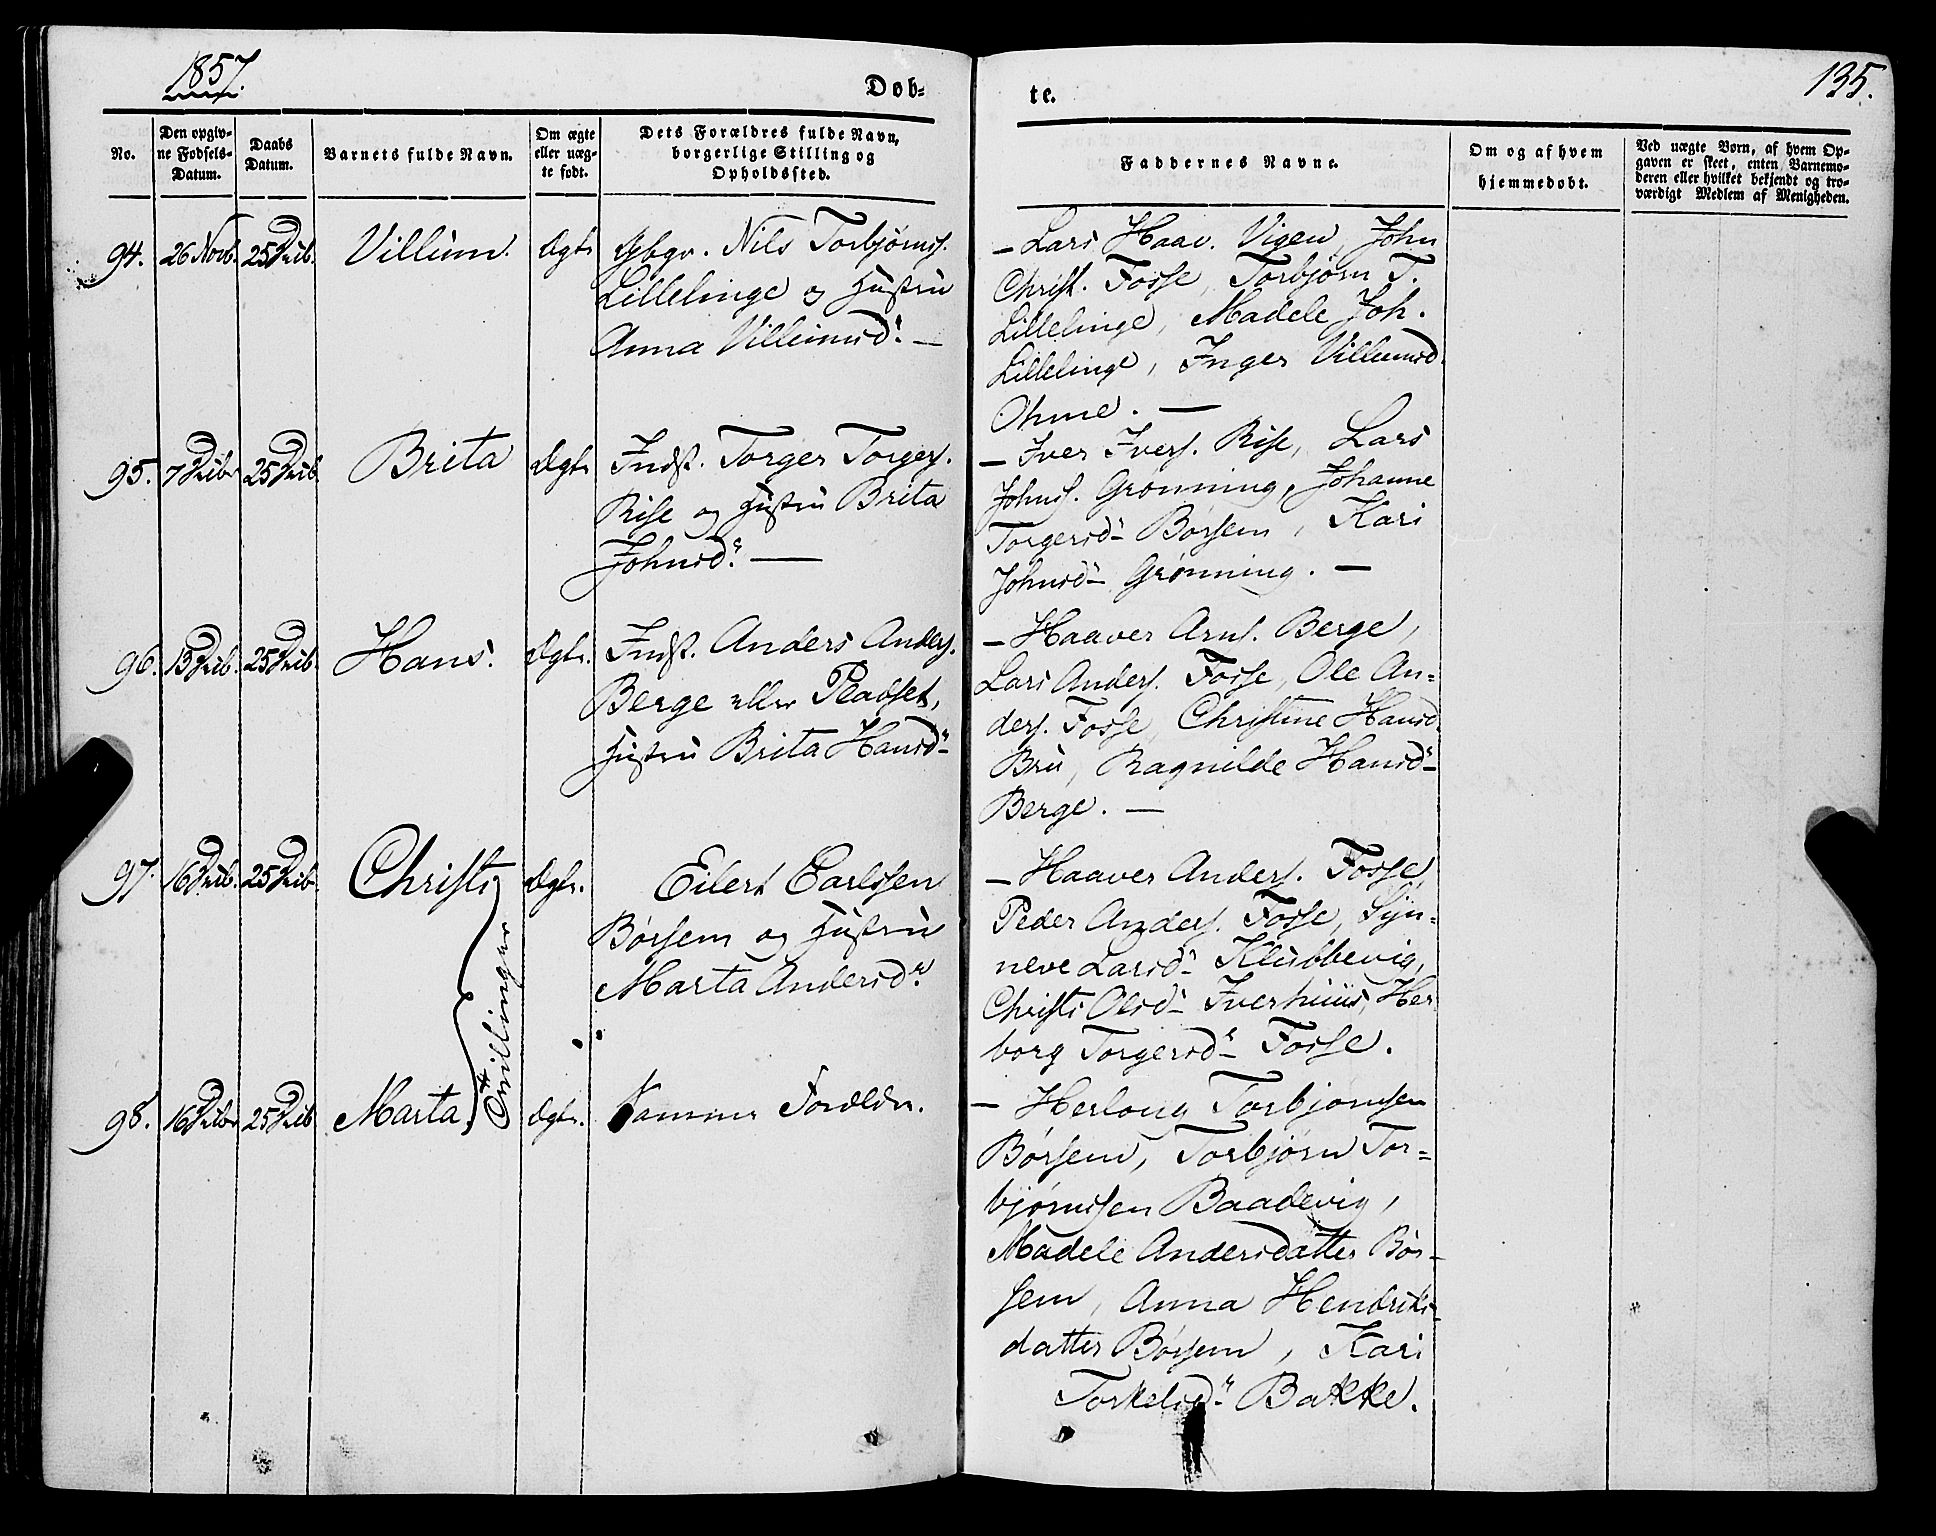 1857.
Døb-
te.
135.
No.
Den opgiv-
ne Fødsels-
Datum.
Daabs
Datum.
Barnets fulde Navn.
Om ægte
eller uæg-
te født.
Dets Forældres fulde Navn,
borgerlige Stilling og
Opholdssted.
Faddernes Navne.
Om og af hvem
hjemmedøbt.
Ved uægte Børn, af hvem Op-
gaven er skeet, enten Barnemo-
deren eller hvilket bekjendt og tro-
værdigt Medlem af Menigheden.
94. 26 Novb. 25 Dcib. Villum. Ægte Gbgr. Nils Torbjørns.
Lillelinge og Hustru
Anna Villumsd. —
— Lars Haav. Vigen, John
Christ. Fosse, Torbjørn T.
Lillelinge, Madele Joh.
Lillelinge, Inger Villumsd.
Ohme. —
95. 7 Dcibr 25 Dcib. Brita Ægte Indst. Torger Torgers.
Rise og Hustru Brita
Johnsd. —
— Iver Ivers. Rise, Lars
Johns. Grønning, Johanne
Torgersd- Børsem, Kari
Johnsd- Grønning. —
96. 13 Dcib. 25 Dcib. Hans. Ægte. Indst. Anders Anders.
Berge eller Pladset,
Hustru Brita Hansd-
— Haaver Arns. Berge,
Lars Anders. Fosse, Ole An=
ders. Fosse, Christine Hansd.
Bru, Ragnilde Hansd-
Berge. —
97. 16 Dcib. 25 Dcib. Christi Ægte. Eilert Carlssen
Børsem og Hustru
Marta Andersd.
— Haaver Anders. Fosse,
Peder Anders. Fosse, Syn=
neve Larsd- Klubbevig,
Christi Olsd- Iverhuus, Her
borg Torgersd- Fosse.
Tvillinger
98. 16 Dcibr 25 Dcib Marta, Ægte. Samme Forældre.
— Herloug Torbjørnsen
Børsem, Torbjørn Tor=
bjørnssen Baadevig,
Madele Andersdatter Bør-
sem, Anna Hendriks-
datter Børsem, Kari
Torkelsd- Bakke.